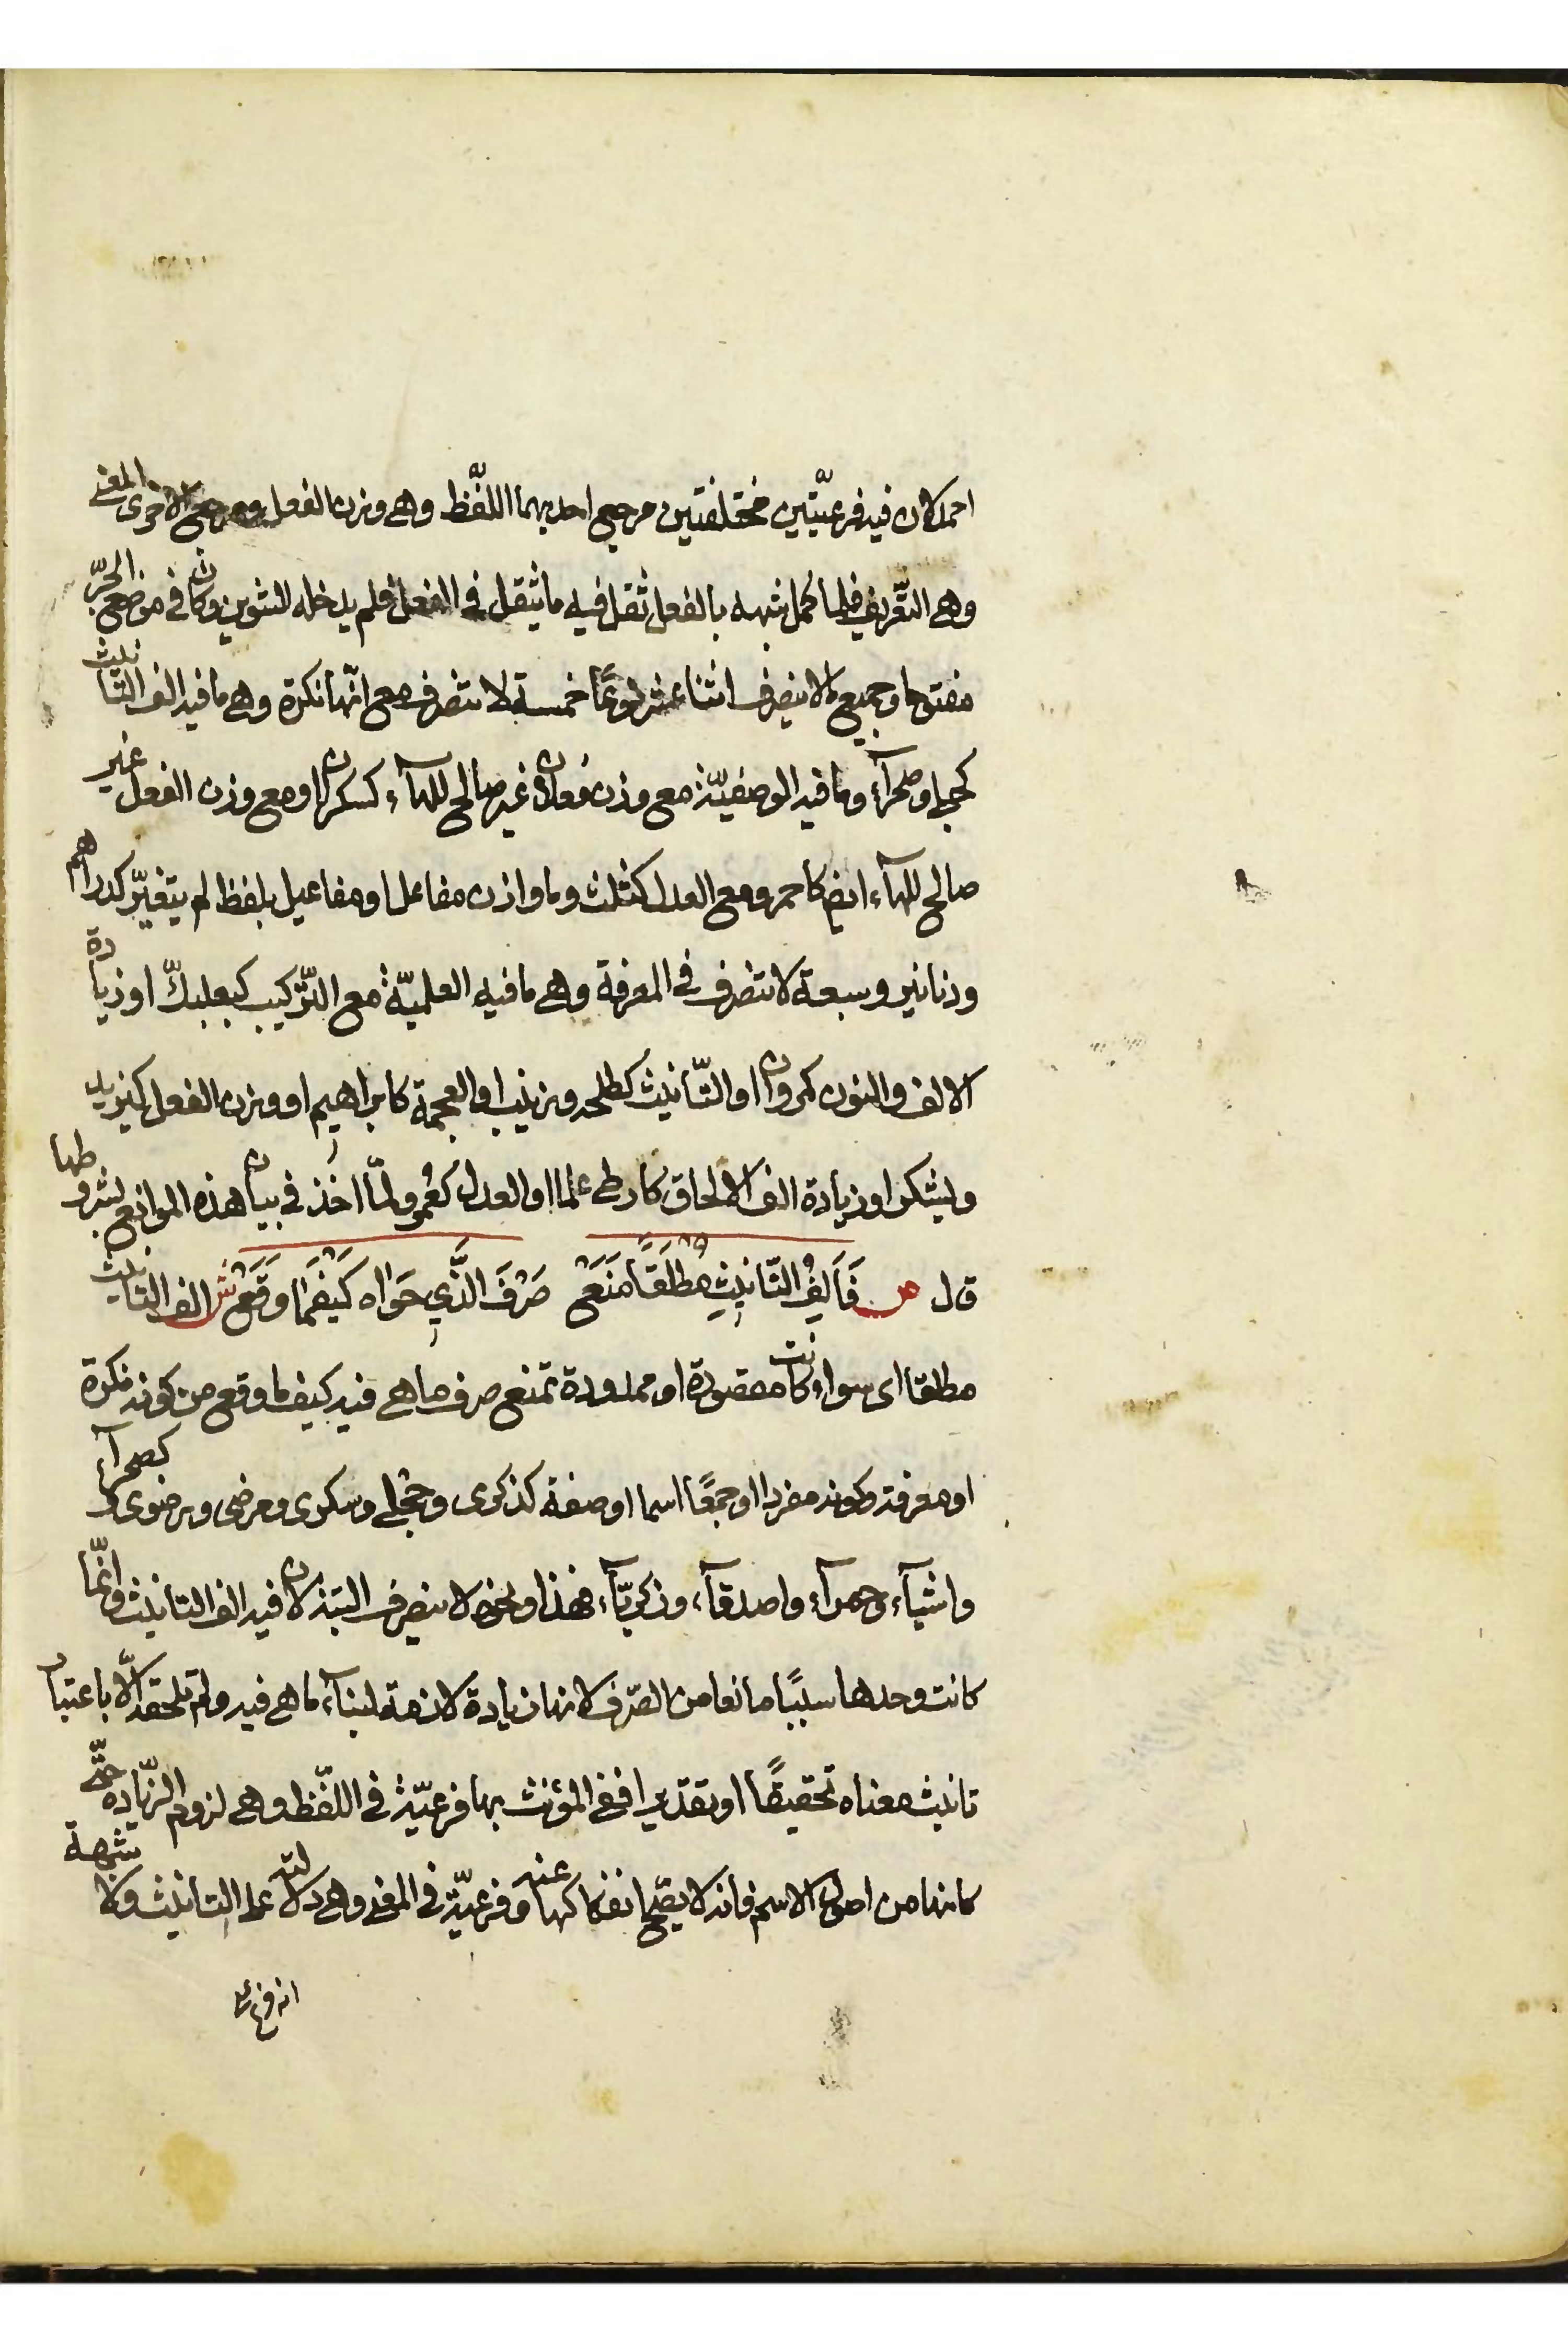 احمد لان فيه فرعيّتين مختلفتين مرجع احديهما اللفظ وهي وزن الفعل ومرجع الاخرى المعنى
وهي التعريف فلما كمل شبهه بالفعل ثقل فيه ما يثقل في الفعل فلم يدخله التنوين وكان في موضع الجرّ
مفتوحا وجميع ما لا ينصرف اثنا عشر نوعًا خمسة لا تنصرف مع انّها نكرة وهي ما فيه الف التّانيث
كحبلى وصحرآء وما فيه الوصفيّة مع وزن فعلان غير صالح للهآء كسكران او مع وزن الفعل غير
صالح للهآء ايضا كاحمر ومع العدل كثلث وما وازن مفاعل او مفاعيل بلفظ لم يتغيّر كدراهم
ودنانير وسبعة لا تنصرف في المعرفة وهي ما فيه العلميّة مع التّركيب كبعلبكّ او زيادة
الالف والنون كمروان او التّأنيث كطلحه وزينب او العجمة كابراهيم او وزن الفعل كيزيد
ويشكر او زيادة الف الالحاق كارطى علما او العدل كعُمر ولمّا اخذ في بيان هذه الموانع بشروطها
قال ص فَاَلِفُ التّانيثِ مُطلَقًا مَنَعْ صَرْفَ الَّذِي حَوَاه كَيْفَمَا وَقَعْ ش الف التانيث
مطلقا اى سواء كانت مقصورة او ممدودة تمنع صرف ما هي فيه كيفما وقع من كونه نكرة
او معرفة وكونه مفردا او جمعًا اسما او صفة كذكرى وحجلى وسكرى ومرضى ورضوى وكصحرآء
واشيآء وحمرآء واصدقآء وزكريّآء فهذا ونحوه لا ينصرف البتة لان فيه الف التانيث وانّما
كانت وحدها سببًا مانعا من الصّرف لانها زيادة لازمة لبنآء ما هي فيه ولم تلحقه الّا باعتبار
تانيث معناه تحقيقًا او تقديرا ففي المؤنث بها فرعيّة في اللّفظ وهي لزوم الزّيادة حتّى
كانها من اصول الاسم فانه لا يصحّ انفكاكها عنه وفرعيّة في المعنى وهي دلالته على التانيث ولا شبهة
انه فرع